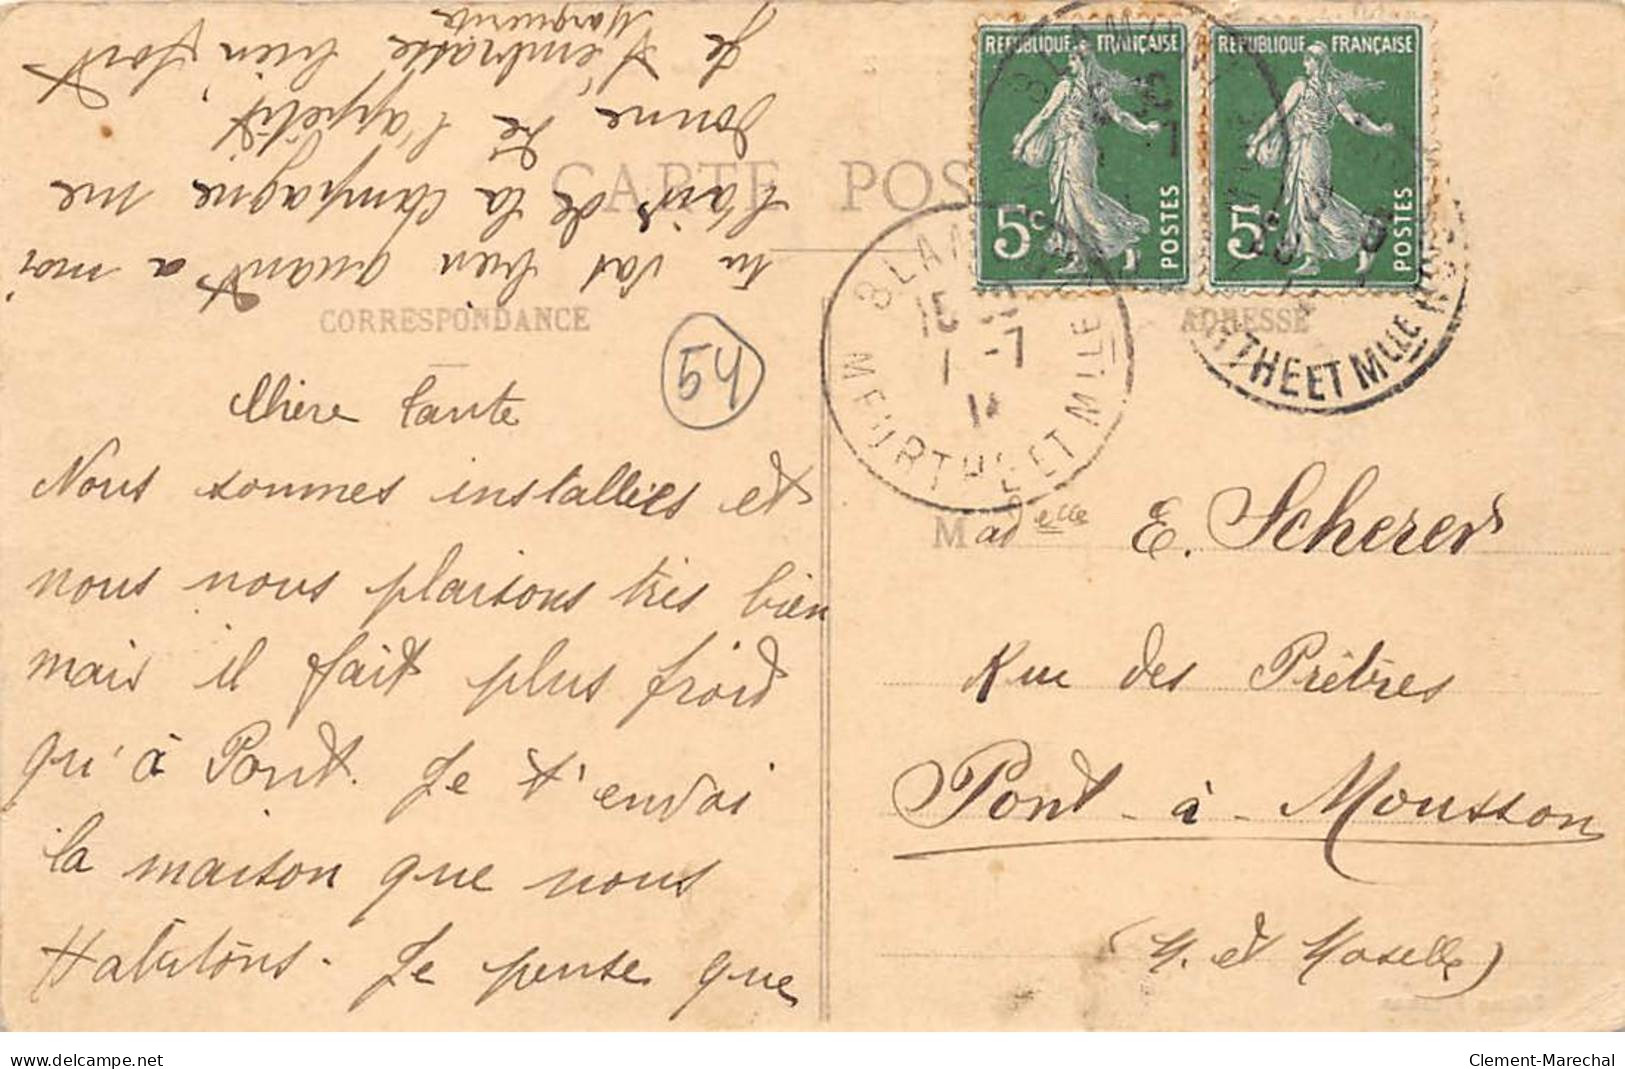 CARTE POS
CORRESPONDANCE
ADRESSE
54
Chère tante
Nous sommes installées et
nous nous plaisons très bien
mais il fait plus froid
qu'à Pont. Je t'envoi
la maison que nous
Habitons. Je pense que
tu vas bien quant a moi
l'air de la campagne me
donne de l'appétit
Je t'embrasse bien fort
Marguerite
REPUBLIQUE FRANÇAISE
5c POSTES
REPUBLIQUE FRANÇAISE
5c POSTES
BLAM
15
1 -7
14
MEURTHE ET MLLE
THE ET MLLE
Madelle E. Scherer
Rue des Prêtres
Pont-à-Mousson
(M. et Moselle)
www.delcampe.net
Clement-Marechal